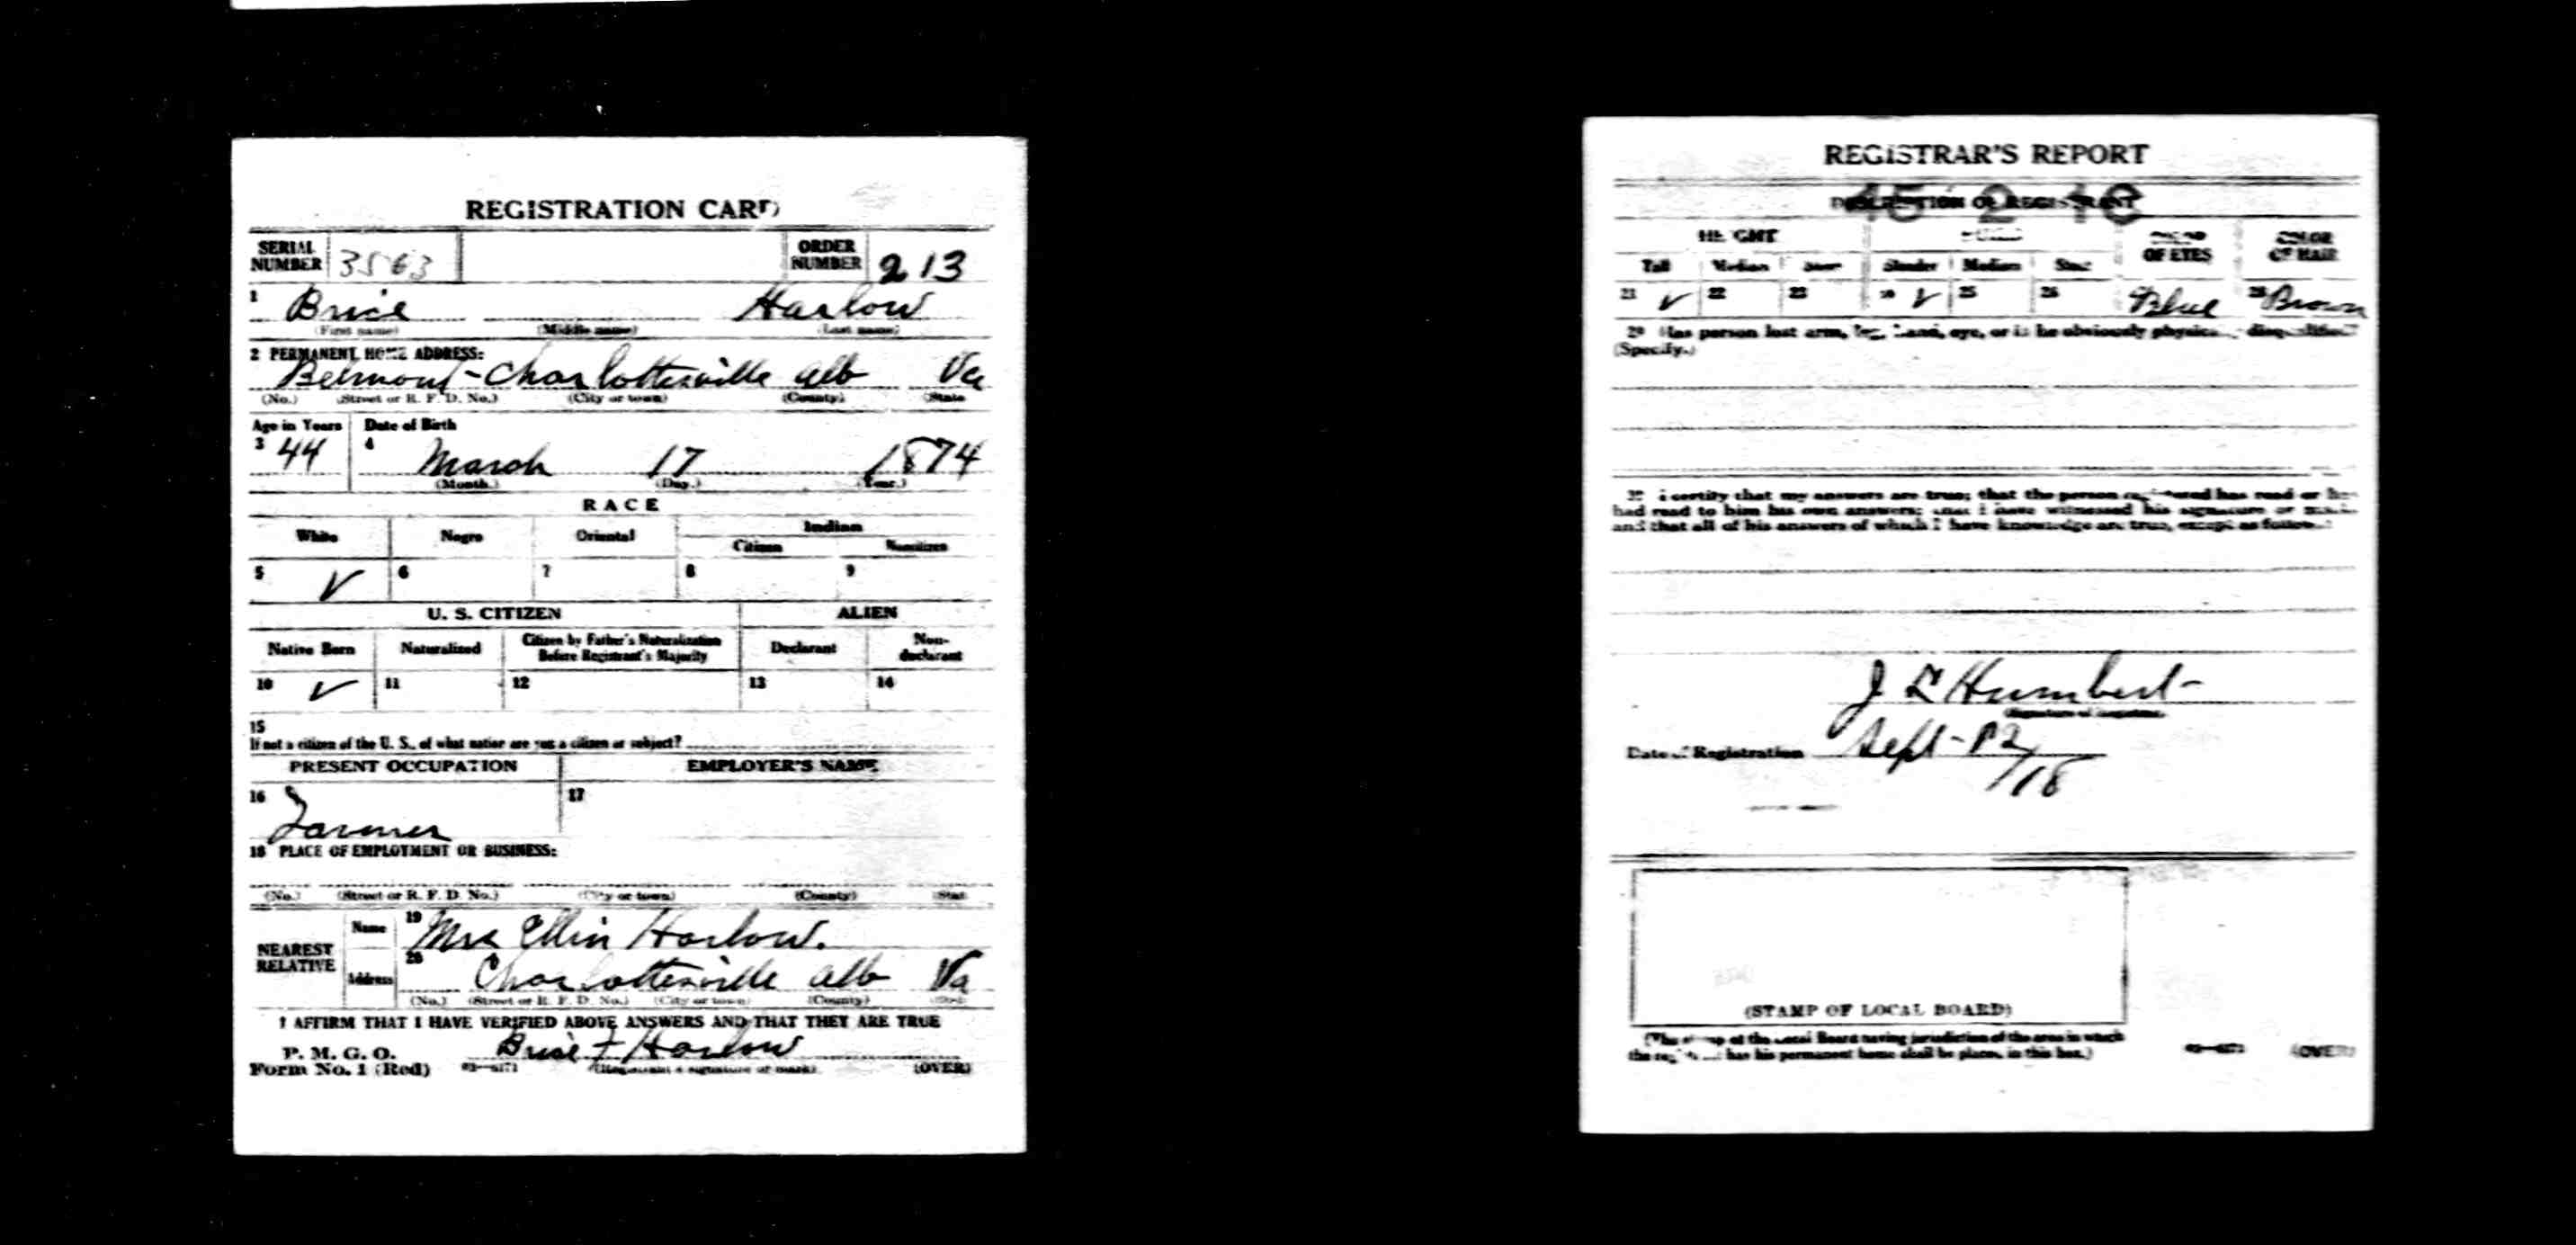 REGISTRATION CARD
SERIAL NUMBER 3563 ORDER NUMBER 213
1 Brice Harlow
(First name) (Middle name) (Last name)
2 PERMANENT HOME ADDRESS:
Belmont - Charlottesville Alb Va
(No.) (Street or R. F. D. No.) (City or town) (County) (State
Age in Years Date of Birth
3 44 4 March 17 1874
(Month.) (Day.) (Year.)
RACE
White Negro Oriental Indian
Citizen Noncitizen
5 ✓ 6 7 8 9
U. S. CITIZEN ALIEN
Native Born Naturalized Citizen by Father's Naturalization Before Registrant's Majority Declarant Non-declarant
10 ✓ 11 12 13 14
15
If not a citizen of the U. S., of what nation are you a citizen or subject?
PRESENT OCCUPATION EMPLOYER'S NAME
16 Farmer 17
18 PLACE OF EMPLOYMENT OR BUSINESS:
(No.) (Street or R. F. D. No.) (City or town) (County) (State
NEAREST RELATIVE Name 19 Mrs Ellin Harlow.
Address 20 Charlottesville Alb Va
(No.) (Street or R. F. D. No.) (City or town) (County) (State)
I AFFIRM THAT I HAVE VERIFIED ABOVE ANSWERS AND THAT THEY ARE TRUE
P. M. G. O.
Form No. 1 (Red) Brice F Harlow
(Registrant's signature or mark) (OVER)
REGISTRAR'S REPORT
DESCRIPTION OF REGISTRANT
HEIGHT BUILD COLOR OF EYES COLOR OF HAIR
Tall Medium Short Slender Medium Stout
21 ✓ 22 23 24 ✓ 25 26 Blue 28 Brown
29 Has person lost arm, leg, hand, eye, or is he obviously physically disqualified?
(Specify.)
30 I certify that my answers are true; that the person registered has read or has
had read to him his own answers; that I have witnessed his signature or mark,
and that all of his answers of which I have knowledge are true, except as follows:
J L Humbert
(Signature of Registrar)
Date of Registration Sept - 12/18
(STAMP OF LOCAL BOARD)
(The stamp of the Local Board having jurisdiction of the area in which
the registrant has his permanent home shall be placed in this box.)
(OVER)